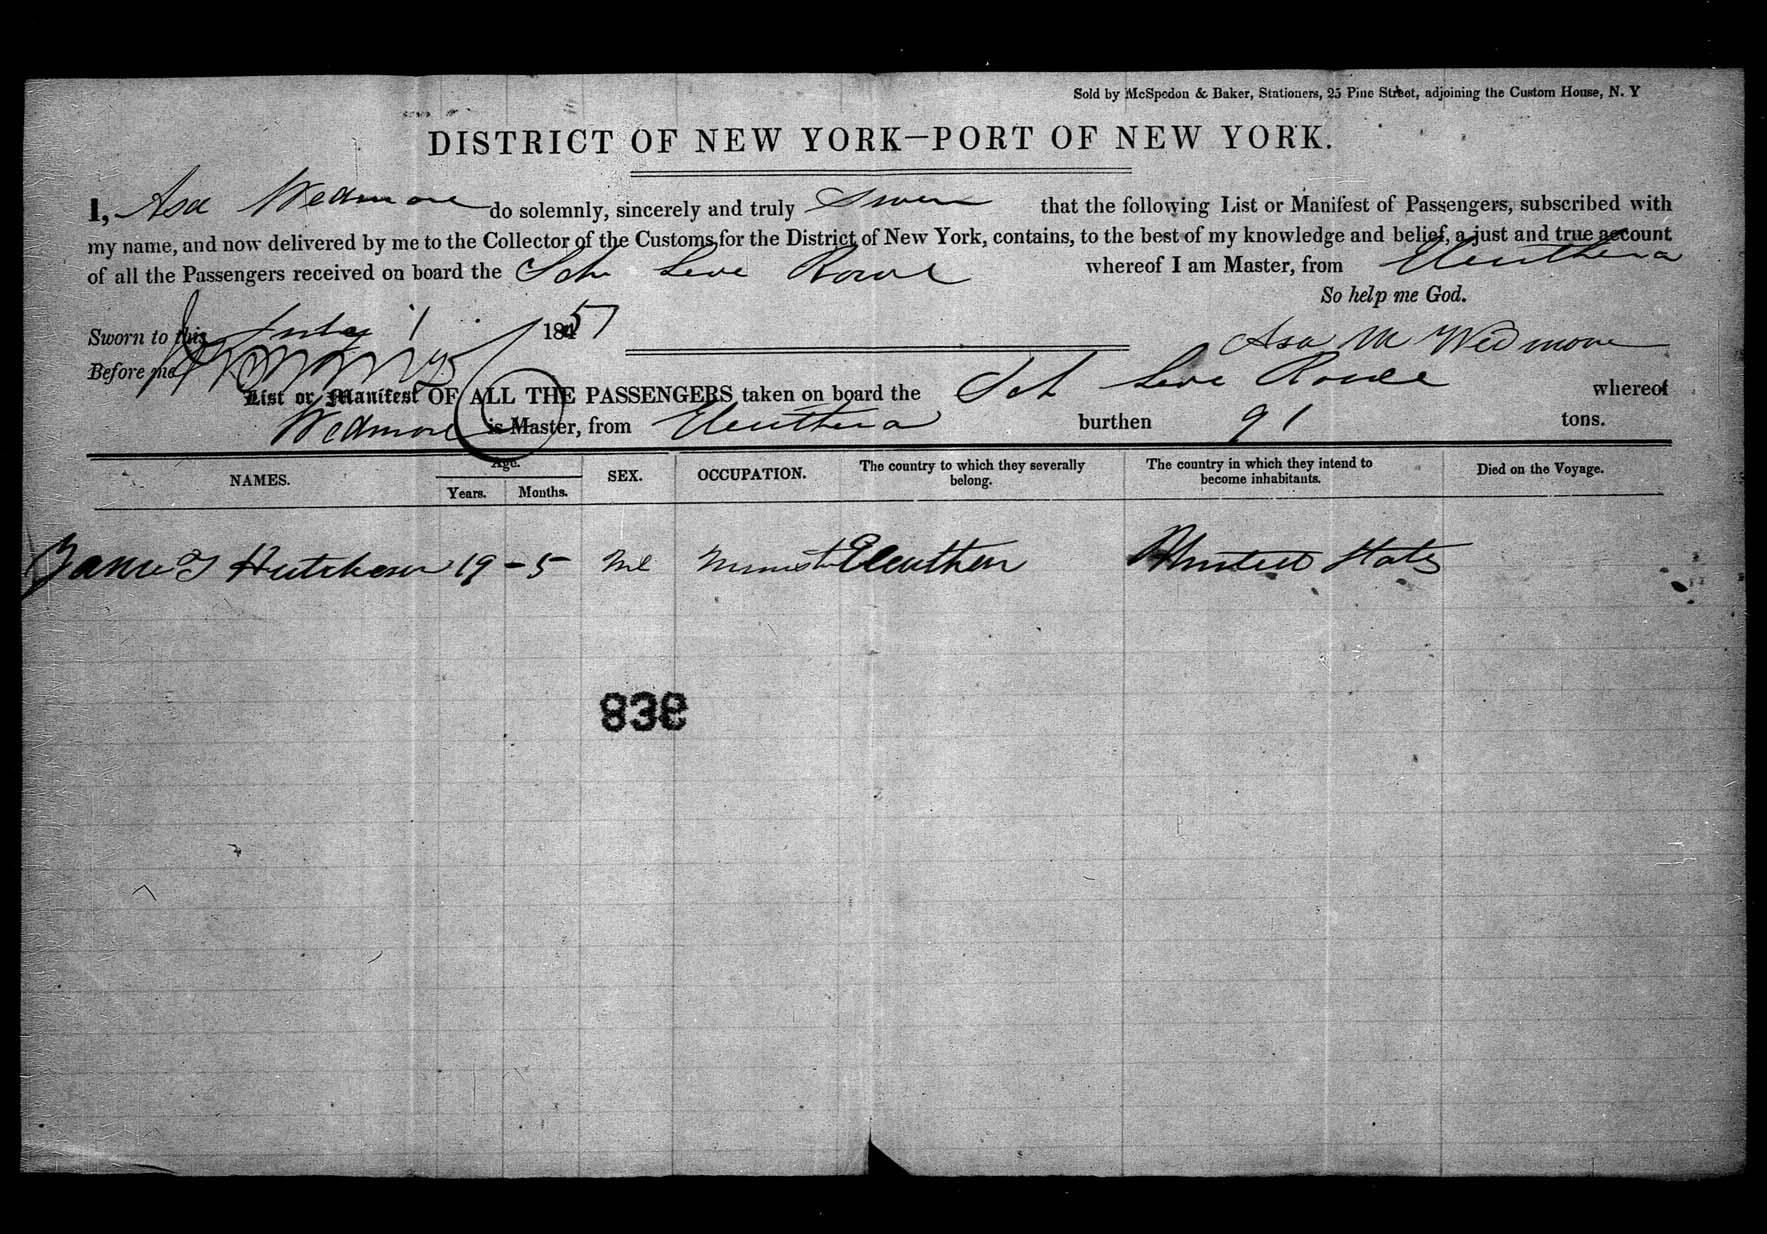 Sold by McSpedon & Baker, Stationers, 25 Pine Street, adjoining the Custom House, N. Y
DISTRICT OF NEW YORK—PORT OF NEW YORK.
I, Asa Wedmore do solemnly, sincerely and truly Swear that the following List or Manifest of Passengers, subscribed with
my name, and now delivered by me to the Collector of the Customs for the District of New York, contains, to the best of my knowledge and belief, a just and true account
of all the Passengers received on board the Sch Leve Rowe whereof I am Master, from Eleuthera
So help me God.
Sworn to this July 1 1857
Asa M Wedmore
Before me
List or Manifest OF ALL THE PASSENGERS taken on board the Sch Leve Rowe whereof
Wedmore is Master, from Eleuthera burthen 91 tons.
NAMES. Age. Years. Months. SEX. OCCUPATION. The country to which they severally belong. The country in which they intend to become inhabitants. Died on the Voyage.
Hutcheson 19 - 5 Ml Eleuthera United States
838